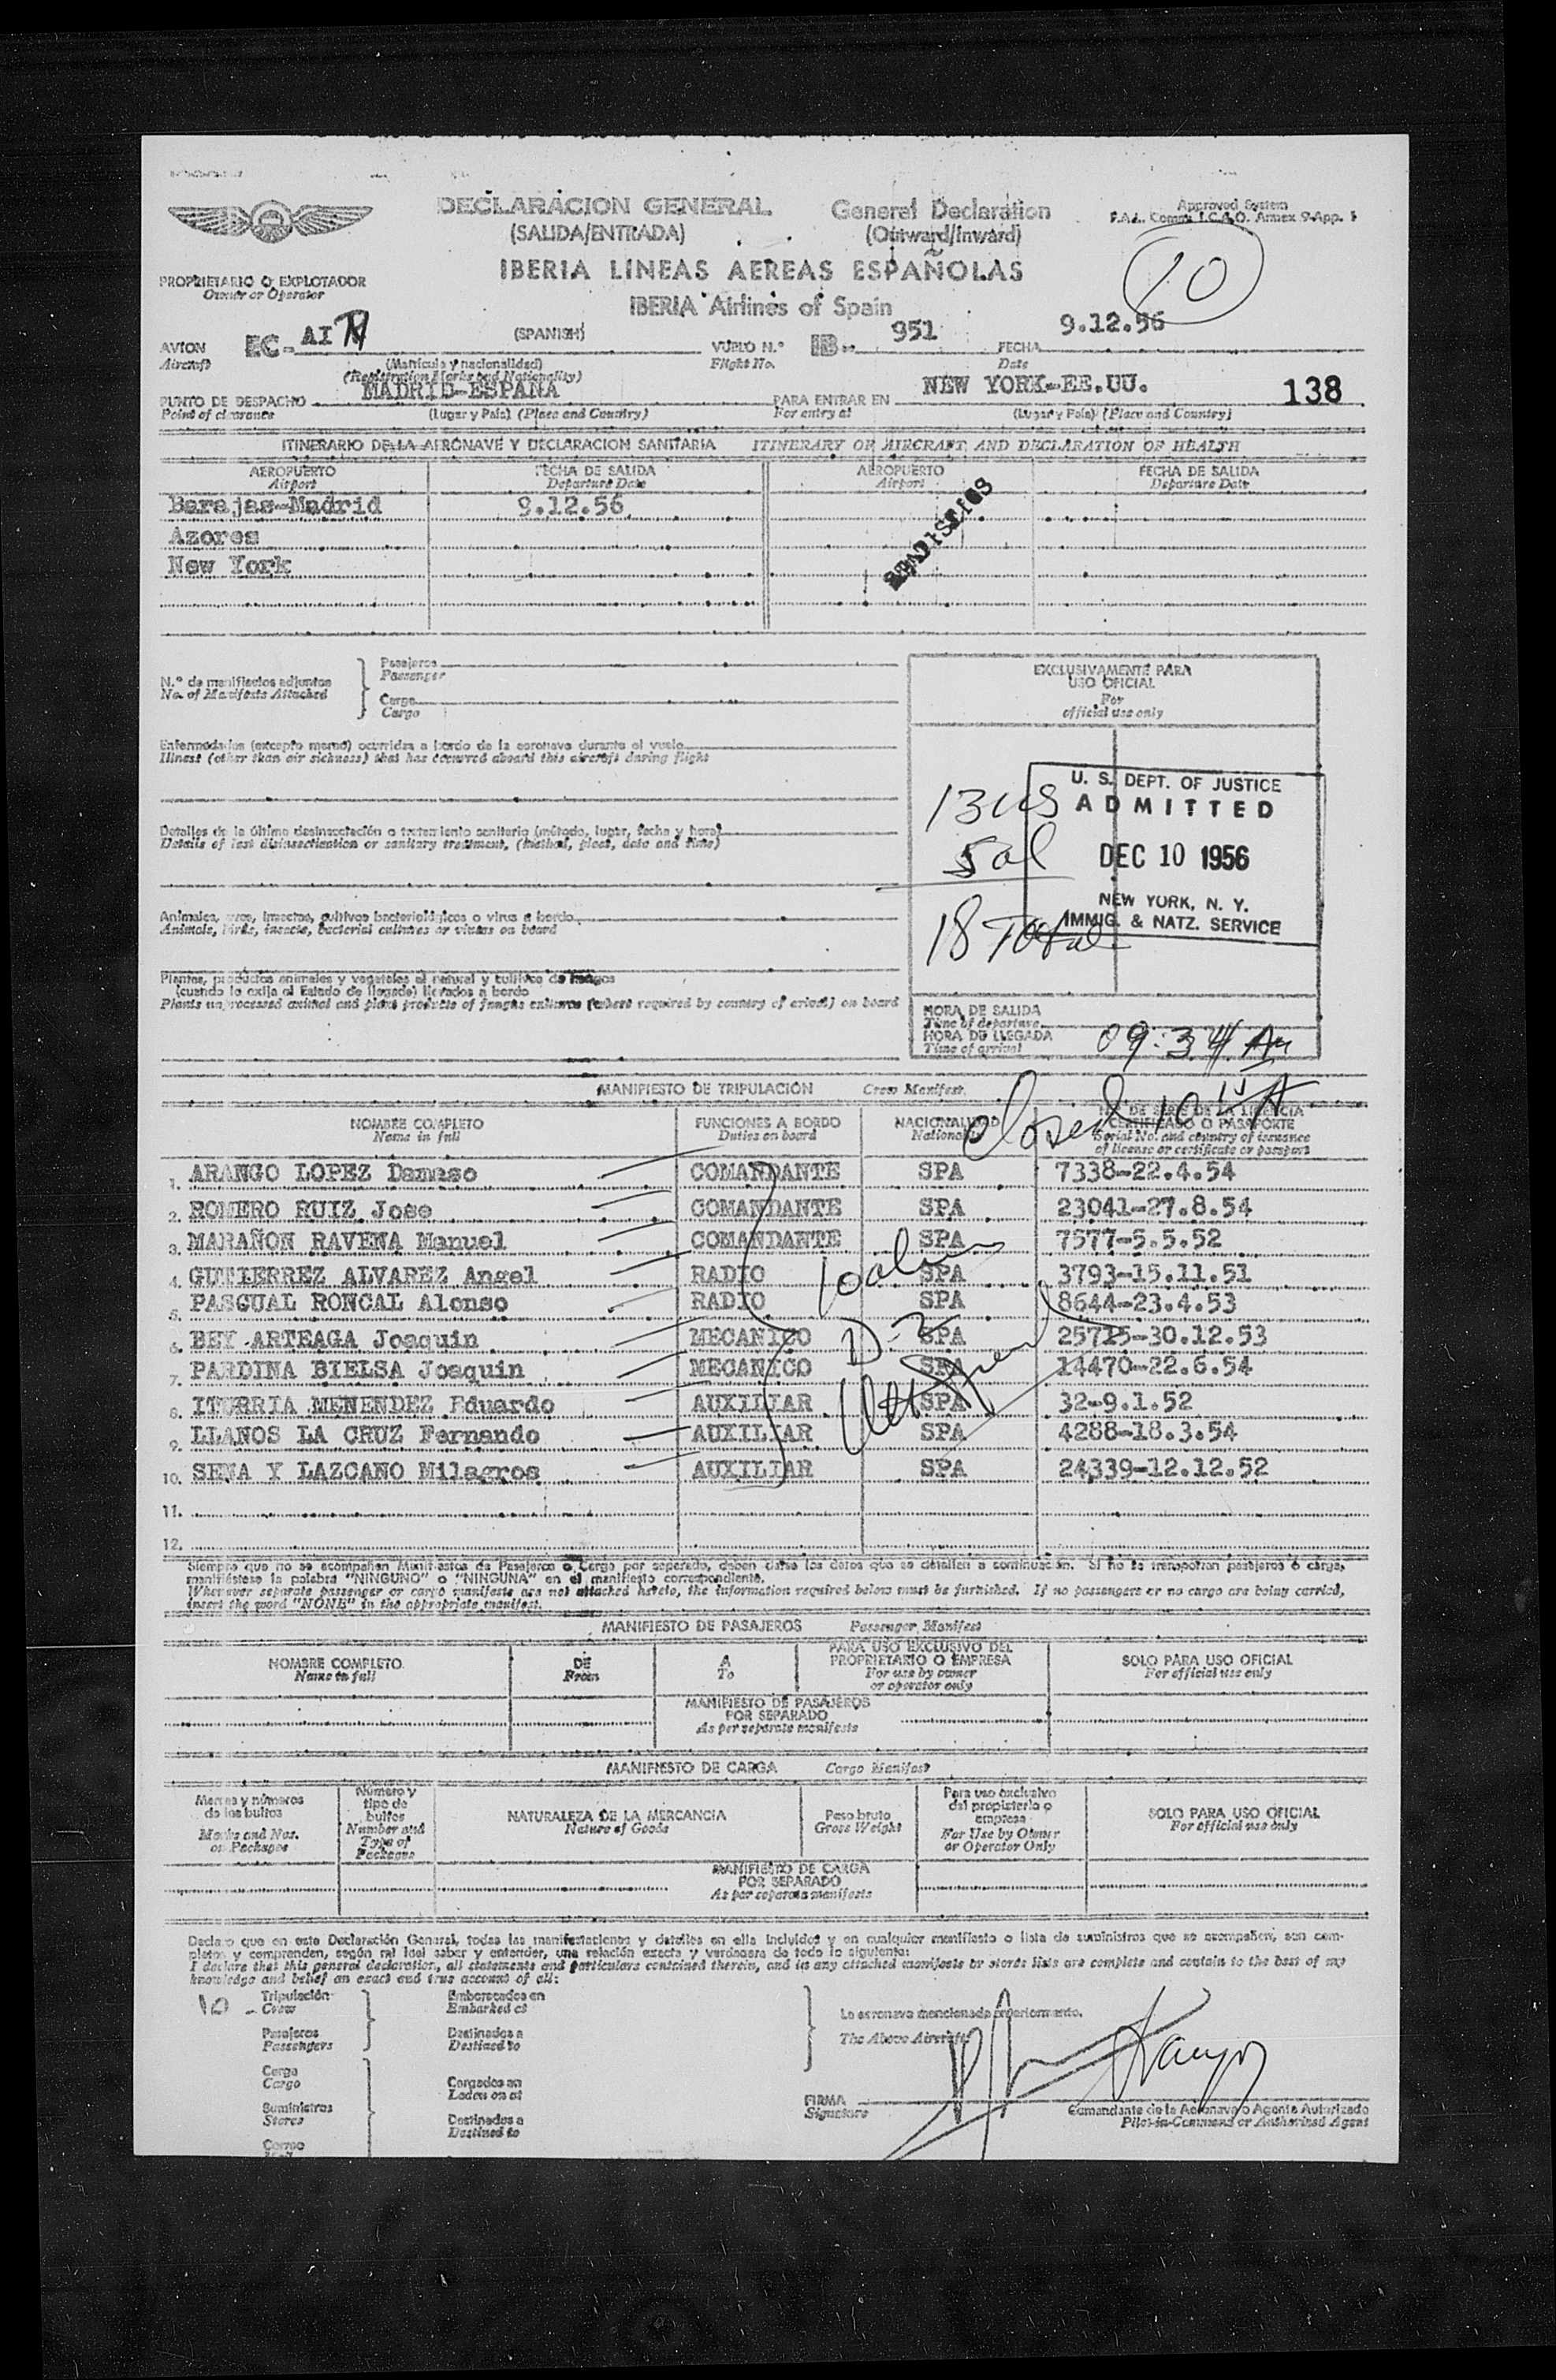 DECLARACION GENERAL General Declaration
(SALIDA/ENTRADA) (Outward/Inward)
Approved System
F.A.L. Comm. I.C.A.O. Annex 9-App. 1
10
IBERIA LINEAS AEREAS ESPAÑOLAS
IBERIA Airlines of Spain
PROPRIETARIO O EXPLOTADOR
Owner or Operator
AVION EC- AI (SPANISH) VUELO N.° IB- 951 FECHA 9.12.56
Aircraft (Matrícula y nacionalidad) Flight No. Date
(Registration Marks and Nationality)
PUNTO DE DESPACHO MADRID-ESPAÑA PARA ENTRAR EN NEW YORK-EE.UU. 138
Point of clearance (Lugar y País) (Place and Country) For entry at (Lugar y País) (Place and Country)
ITINERARIO DE LA AERONAVE Y DECLARACION SANITARIA ITINERARY OF AIRCRAFT AND DECLARATION OF HEALTH
AEROPUERTO FECHA DE SALIDA AEROPUERTO FECHA DE SALIDA
Airport Departure Date Airport Departure Date
Barajas-Madrid 9.12.56
Azores
New York
N.° de manifiestos adjuntos Pasajeros
No. of Manifests Attached Passenger
Carga
Cargo
EXCLUSIVAMENTE PARA
USO OFICIAL
For
official use only
Enfermedades (excepto mareo) ocurridas a bordo de la aeronave durante el vuelo
Illness (other than air sickness) that has occurred aboard this aircraft during flight
Detalles de la última desinsectación o tratamiento sanitario (método, lugar, fecha y hora)
Details of last disinsectisation or sanitary treatment, (method, place, date and time)
Animales, aves, insectos, cultivos bacteriológicos o virus a bordo
Animals, birds, insects, bacterial cultures or viruses on board
Plantas, productos animales y vegetales al natural y cultivos de hongos
(cuando lo exija el Estado de llegada) llevados a bordo
Plants unprocessed animal and plant products of fungus cultures (where required by country of arival) on board
13 US
5 al
18 Total
U. S. DEPT. OF JUSTICE
ADMITTED
DEC 10 1956
NEW YORK, N. Y.
IMMIG. & NATZ. SERVICE
HORA DE SALIDA
Time of departure
HORA DE LLEGADA
Time of arrival 09:34 AM
MANIFIESTO DE TRIPULACION Crew Manifest
closed 10 15 A
NOMBRE COMPLETO FUNCIONES A BORDO NACIONALIDAD N.° DE SERIE DE LA LICENCIA
Name in full Duties on board National CERTIFICADO O PASAPORTE
Serial No. and country of issuance
of license or certificate or passport
1. ARANGO LOPEZ Damaso COMANDANTE SPA 7338-22.4.54
2. ROMERO RUIZ Jose COMANDANTE SPA 23041-27.8.54
3. MARAÑON RAVENA Manuel COMANDANTE SPA 7577-5.5.52
4. GUTIERREZ ALVAREZ Angel RADIO SPA 3793-15.11.51
5. PASGUAL RONCAL Alonso RADIO SPA 8644-23.4.53
6. BEY ARTEAGA Joaquin MECANICO SPA 25715-30.12.53
7. PARDINA BIELSA Joaquin MECANICO SPA 14470-22.6.54
8. ITURRIA MENENDEZ Eduardo AUXILIAR SPA 32-9.1.52
9. LLANOS LA CRUZ Fernando AUXILIAR SPA 4288-18.3.54
10. SENA Y LAZCANO Milagros AUXILIAR SPA 24339-12.12.52
11.
12.
D-2
Siempre que no se acompañen Manifiestos de Pasajeros o Carga por separado, deben darse los datos que se detallan a continuación. Si no se transportan pasajeros ó carga,
manifiéstese la palabra "NINGUNO" o "NINGUNA" en el manifiesto correspondiente.
Whenever separate passenger or cargo manifests are not attached hereto, the information required below must be furnished. If no passengers or no cargo are being carried,
insert the word "NONE" in the appropriate manifest.
MANIFIESTO DE PASAJEROS Passenger Manifest
NOMBRE COMPLETO DE A PARA USO EXCLUSIVO DEL SOLO PARA USO OFICIAL
Name in full From To PROPRIETARIO O EMPRESA For official use only
For use by owner
or operator only
MANIFIESTO DE PASAJEROS
POR SEPARADO
As per separate manifests
MANIFIESTO DE CARGA Cargo Manifest
Marcas y números
de los bultos
Marks and Nos.
on Packages
Número y
tipo de
bultos
Number and
Type of
Packages
NATURALEZA DE LA MERCANCIA
Nature of Goods
Peso bruto
Gross Weight
Para uso exclusivo
del propietario o
empresa
For Use by Owner
or Operator Only
SOLO PARA USO OFICIAL
For official use only
MANIFIESTO DE CARGA
POR SEPARADO
As per separate manifests
Declaro que en esta Declaración General, todas las manifestaciones y detalles en ella incluidos y en cualquier manifiesto o lista de suministros que se acompañen, son com-
pletos y comprenden, según mi leal saber y entender, una relación exacta y verdadera de todo lo siguiente:
I declare that this general declaration, all statements and particulars contained therein, and in any attached manifests or stores lists are complete and contain to the best of my
knowledge and belief an exact and true account of all:
10 - Tripulación
Crew
Pasajeros
Passengers
Carga
Cargo
Suministros
Stores
Correo
Embarcados en
Embarked at
Destinados a
Destined to
Cargados en
Laden on at
Destinados a
Destined to
La aeronave mencionada anteriormente.
The Above Aircraft
FIRMA
Signature
Comandante de la Aeronave o Agente Autorizado
Pilot-in-Command or Authorized Agent